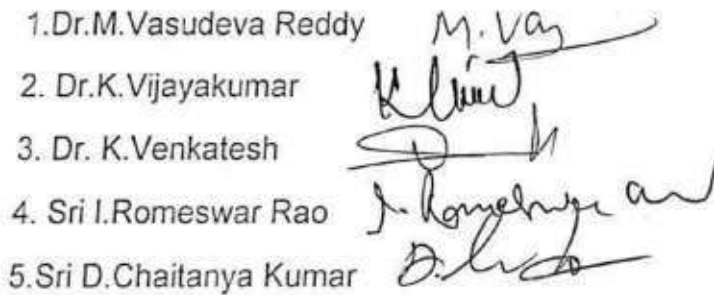 1.Dr.M.Vasudeva Reddy M.Vas
2. Dr.K.Vijayakumar
3. Dr. K.Venkatesh
4. Sri I.Romeswar Rao I. Romeshwar
5.Sri D.Chaitanya Kumar